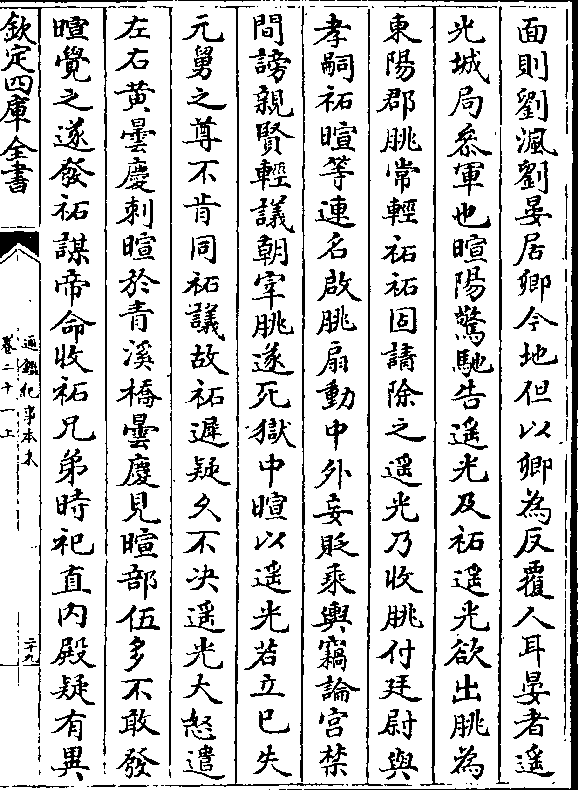 面則劉渢劉晏居卿今地但以卿為反覆人耳晏者遥
光城局參軍也暄陽驚馳告遥光及祏遥光欲出朓為
東陽郡朓常輕祏祏固請除之遥光乃收朓付廷尉與
孝嗣祏暄等連名啟朓扇動中外妄貶乘輿竊論宫禁
間謗親賢輕議朝宰朓遂死獄中暄以遥光若立已失
元舅之尊不肯同祏議故祏遲疑久不決遥光大怒遣
左右黄曇慶刺暄於青溪橋曇慶見暄部伍多不敢發
暄覺之遂發祏謀帝命收祏兄弟時祀直内殿疑有異
欽定四庫全書
通鑑紀事本末
卷二十一上
二十九